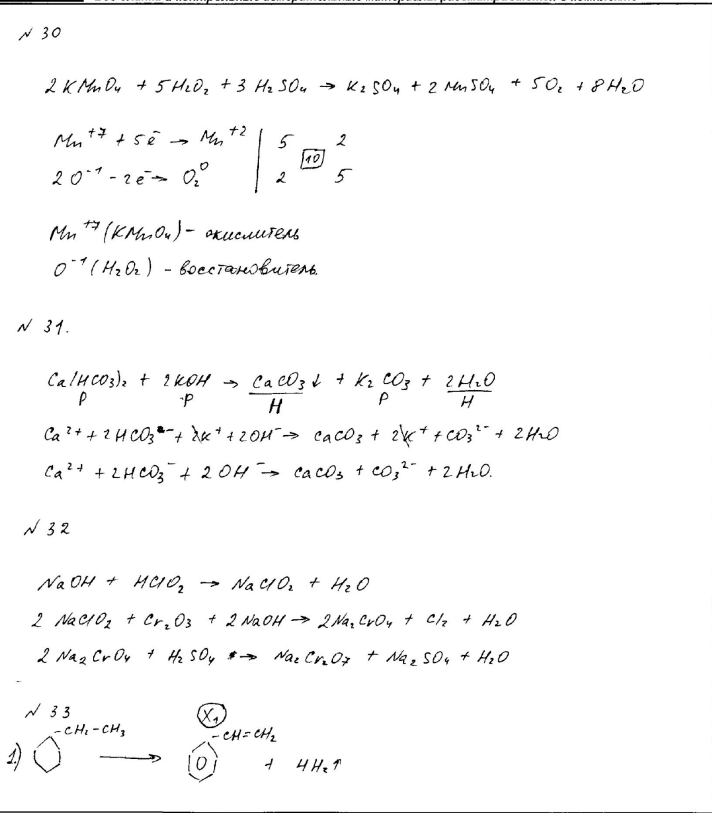 N 30
2KMnO₄ + 5H₂O₂ + 3H₂SO₄ → K₂SO₄ + 2MnSO₄ + 5O₂ + 8H₂O
Mn⁺⁷ + 5ē → Mn⁺² | 5 10 2
2O⁻¹ - 2ē → O₂⁰ | 2 5
Mn⁺⁷(KMnO₄) - окислитель
O⁻¹(H₂O₂) - восстановитель.
N 31.
Ca(HCO₃)₂ + 2KOH → CaCO₃↓ + K₂CO₃ + 2H₂O
P P H P H
Ca²⁺ + 2HCO₃⁻ + 2K⁺ + 2OH⁻ → CaCO₃ + 2K⁺ + CO₃²⁻ + 2H₂O
Ca²⁺ + 2HCO₃⁻ + 2OH⁻ → CaCO₃ + CO₃²⁻ + 2H₂O.
N 32
NaOH + HClO₂ → NaClO₂ + H₂O
2 NaClO₂ + Cr₂O₃ + 2NaOH → 2Na₂CrO₄ + Cl₂ + H₂O
2 Na₂CrO₄ + H₂SO₄ → Na₂Cr₂O₇ + Na₂SO₄ + H₂O
N 33
X₁
1.) -CH₂-CH₃ → -CH=CH₂ + 4H₂↑